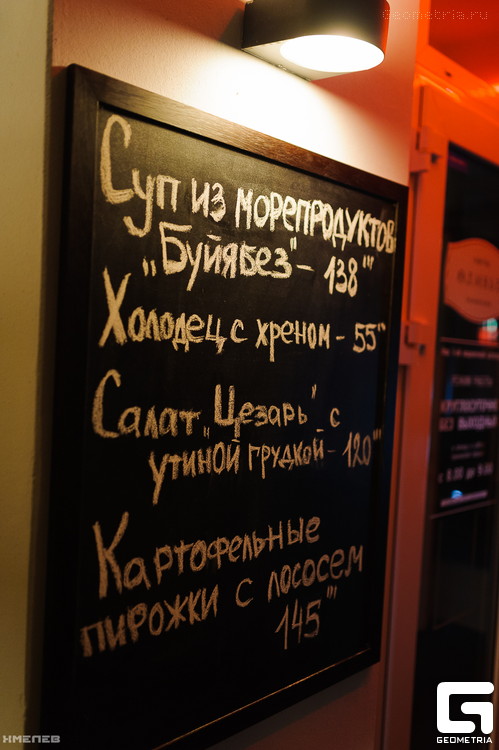 Geometria.ru
Суп из морепродуктов
"Буйябез" - 138'''
Холодец с хреном - 55'''
Салат "Цезарь" с
утиной грудкой - 120'''
Картофельные
пирожки с лососем
145'''
КРУГЛОСУТОЧНО
БЕЗ ВЫХОДНЫХ
ХМЕЛЕВ
GEOMETRIA